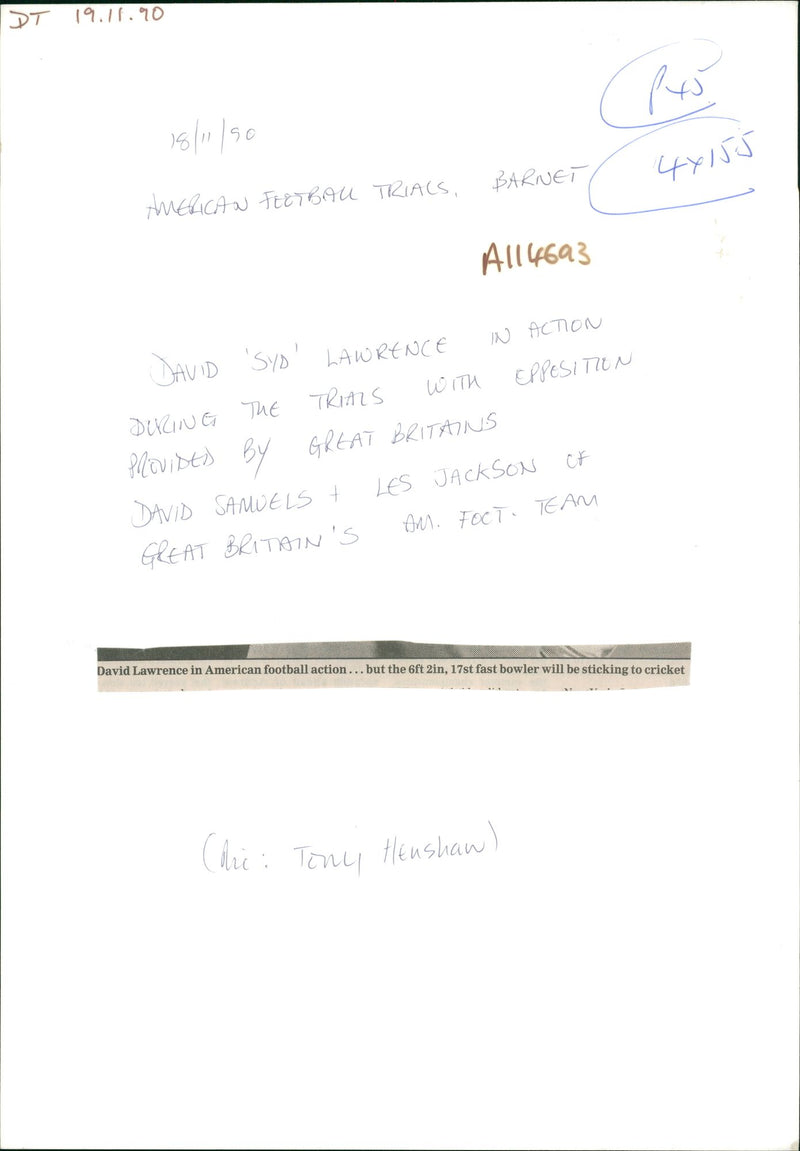 DT 19.11.90
P45
18/11/90
4x155
AMERICAN FOOTBALL TRIALS. BARNET
A114693
DAVID 'SYD' LAWRENCE IN ACTION
DURING THE TRIALS WITH OPPOSITION
PROVIDED BY GREAT BRITAINS
DAVID SAMUELS + LES JACKSON OF
GREAT BRITAIN'S AM. FOOT. TEAM
David Lawrence in American football action . . . but the 6ft 2in, 17st fast bowler will be sticking to cricket
(Pic: Tony Henshaw)